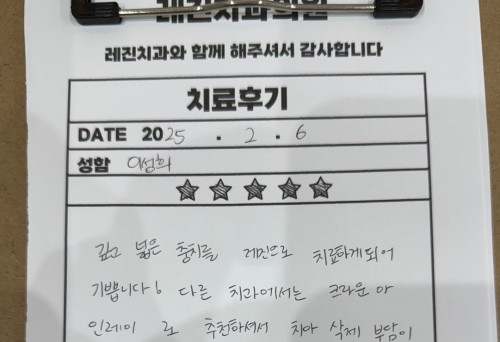 레진치과의원
레진치과와 함께 해주셔서 감사합니다
치료후기
DATE 2025 . 2 . 6
성함 이성희
깊고 넓은 충치를 레진으로 치료하게되어
기쁩니다! 다른 치과에서는 크라운 아
인레이 로 추천하셔서 치아 삭제 부담이